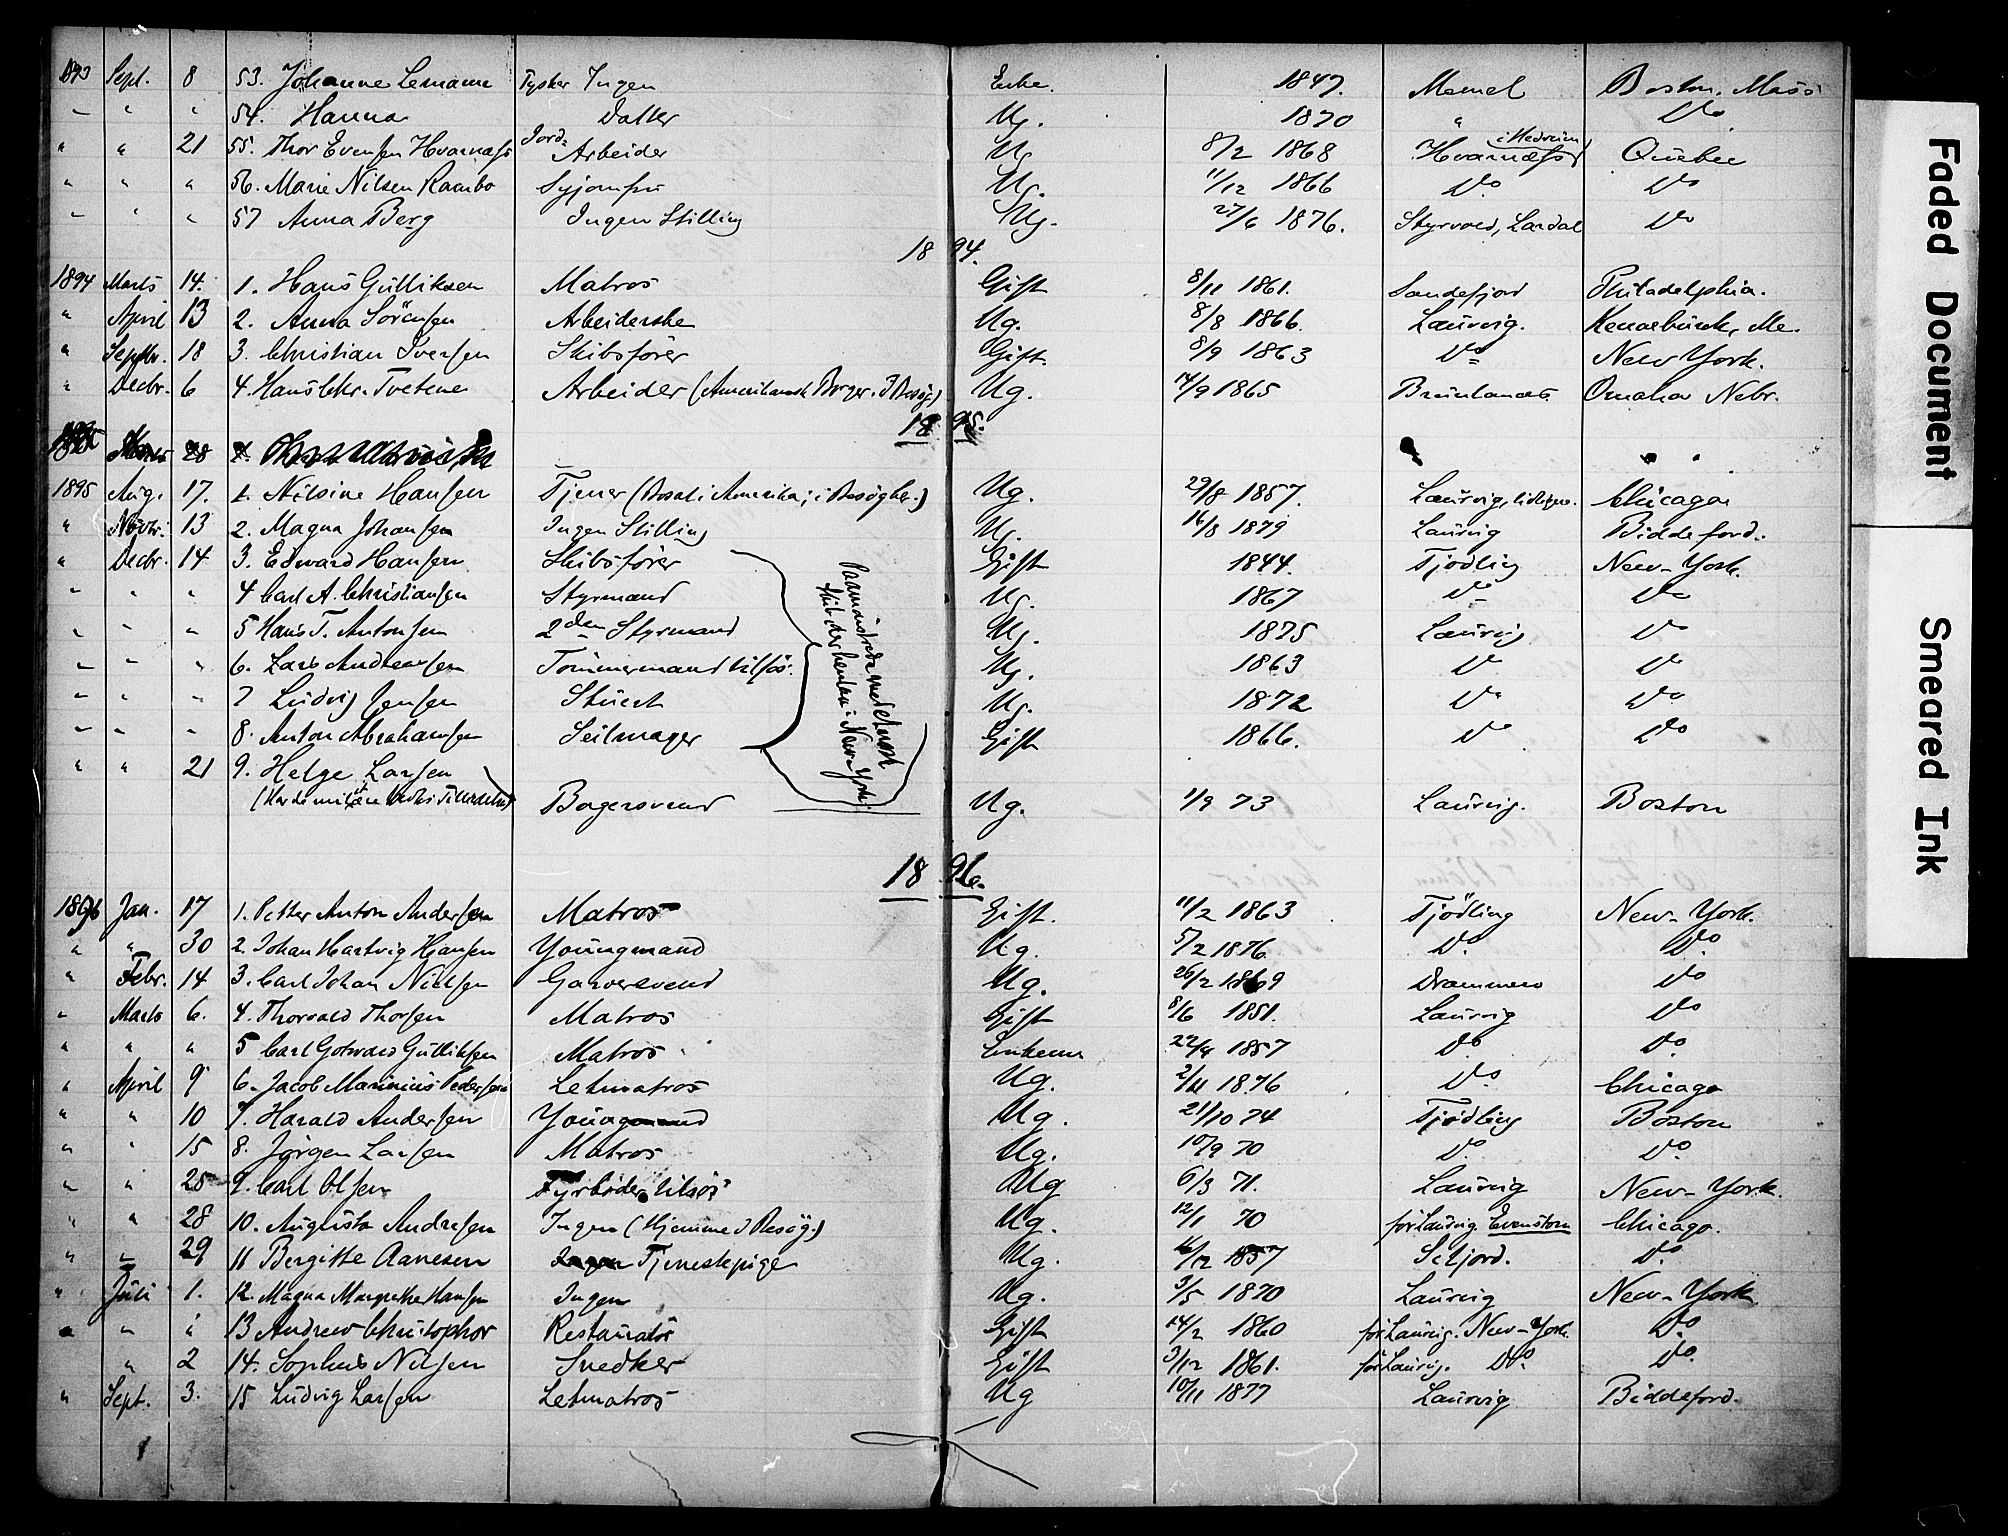 1893 Sept. 8 53. Johanne Lemann Tysker Ingen Enke. 1847. Memel Boston, Mass
" " " 54. Hanna Datter Ug. 1870 " Do
" " 21 55. Thor Evensen Hvarnæs Jord- Arbeider Ug 8/2 1868 Hvarnæs i Hedrum Quebec
" " " 56. Marie Nilsen Rambo Syjomfru Ug. 11/12 1866 Do Do
" " " 57 Anna Berg Ingen Stilling Ug. 27/6 1876. Styrvold, Lardal Do
1894.
1894 Marts 14. 1. Hans Gulliksen Matros Gift 8/11 1861. Sandefjord Philadelphia.
" April 13 2. Anna Sörensen Arbeiderske Ug. 8/8 1866. Laurvig. Kennebunk, Me.
" Septbr. 18 3. Christian Iversen Skibsförer Gift. 8/9 1863 Do New York.
" Decbr. 6 4. Hans Chr. Tvetene Arbeider (Amerikansk Borger. I Besög) Ug. 14/9 1865 Brunlanæs Omaha Nebr.
1895
28
1895 Aug. 17. 1. Nilsine Hansen Tjener (Bosat i Amerika; i Besög her.) Ug. 29/8 1857. Laurvig, Chicago
" Novbr. 13 2. Magna Johansen Ingen Stilling Ug. 16/8 1879 Laurvig Biddeford.
" Decbr. 14 3. Edward Hansen Skibsförer Gift 1844. Tjödling New-York.
" " " 4 Carl A. Christiansen Styrmand Ug. 1867 Do Do
" " " 5 Hans T. Antonsen 2den Styrmand Ug. 1875 Laurvig Do
" " " 6. Lars Andreasen Tömmermand tilsös. Ug. 1863 Do Do
" " " 7 Ludvig Jensen Stuert Ug. 1872 Do Do
" " " 8. Anton Abrahamsen Seilmager Gift 1866. Do Do
Paamönstrede med Skib der hentes i New York.
" " 21 9. Helge Larsen
Bagersvend Ug. 1/9 73 Laurvig. Boston
1896.
1896 Jan. 17 1. Petter Anton Andersen Matros Gift. 11/2 1863 Tjödling New-York.
" " 30 2. Johan Hartvig Hansen Youngmand Ug. 5/2 1876. Do. Do.
" Febr. 14 3. Carl Johan Nielsen Garversvend Ug. 26/2 1869 Drammen Do
" Marts 6. 4. Thorvald Thorsen Matros Gift 8/6 1851. Laurvig Do
" " " 5 Carl Gotvard Gulliksen Matros Enkem 22/4 1857 Do. Do.
" April 9 6. Jacob Marinius Pedersen Letmatros Ug. 2/11 1876 Do. Chicago
" " 10 7. Harald Andersen Youngmand Ug. 21/10 74 Tjödling Boston
" " 15 8. Jörgen Larsen Matros Ug. 10/9 70 Do. Do.
" " 25 9. Carl Olsen Fyrböder tilsös Ug 6/3 71. Laurvig New-York.
" " 28 10. Augusta Andresen Ingen (Hjemme I Besög.) Ug. 12/1 70 för Laurvig Evanston Chicago.
" " 29 11 Bergitte Aanesen Ingen Tjenestepige Ug. 16/12 1857 Seljord. Do.
" Juli 1. 12. Magna Margrethe Hansen Ingen Ug. 3/5 1870 Laurvig New-York
" " " 13 Andrew Christophor Restauratör Gift 14/2 1860 för Laurvig. New-York. Do.
" 2 14. Sophus Nilsen Snedker Gift 3/12 1861. för Laurvig. Do. Do.
" Sept. 3. 15 Ludvig Larsen Letmatros Ug 10/11 1877 Laurvig Biddeford.
Faded Document
Smeared Ink